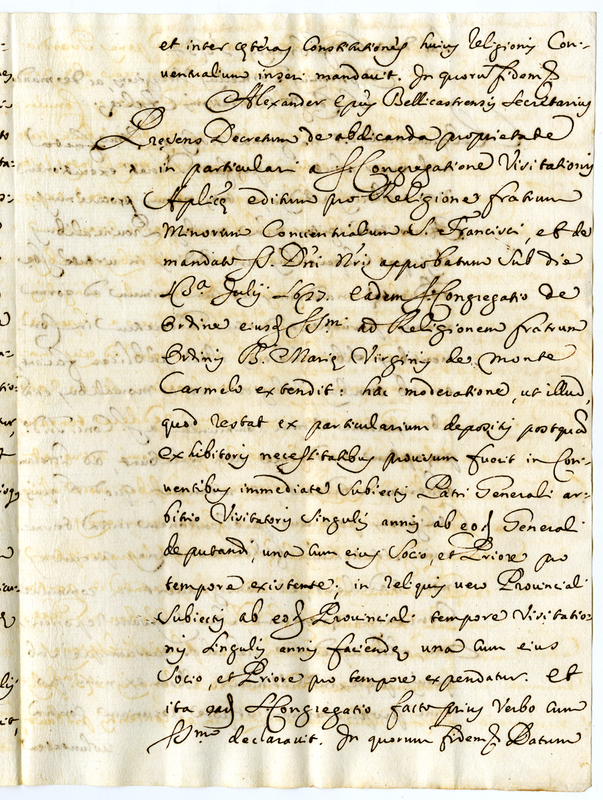 et inter cęteras Constitutiones huius religionis Con-
ventualium inseri mandavit. In quorũ fidem
Alexander Ep̃us Bellicastrensis Secretarius
Presens Decretum de abdicanda proprietate
in particulari a S. Congregatione Visitationis
Ap̃licę editum pro Religione fratrum
Minorum Conventualium S. Francisci, et de
mandato S. Dñi Ñri approbatum sub die
Julij eadem S. Congregatio de
Ordine eiusd SSmi ad Religionem fratrum
Ordinis B. Marię Virginis de monte
Carmelo extendit: hac moderatione, ut illud,
quod restat ex particularium depositis postquã
exhibitoris necessitatibus provisum fuerit in Con-
ventibus immediate subiectis Patri Generali ar-
bitrio Visitatoris singulis annis ab eod Generali
deputandi, una cum eius Socio, et Priore pro
tempore existente; in reliquis vero Provinciali
subiectis ab eod Provinciali tempore Visitatio-
nis singulis annis faciendę una cum eius
Socio, et Priore pro tempore expendatur. Et
ita ead S. Congregatio facto prius verbo cum
SSmo declaravit. In quorum fidem Datum